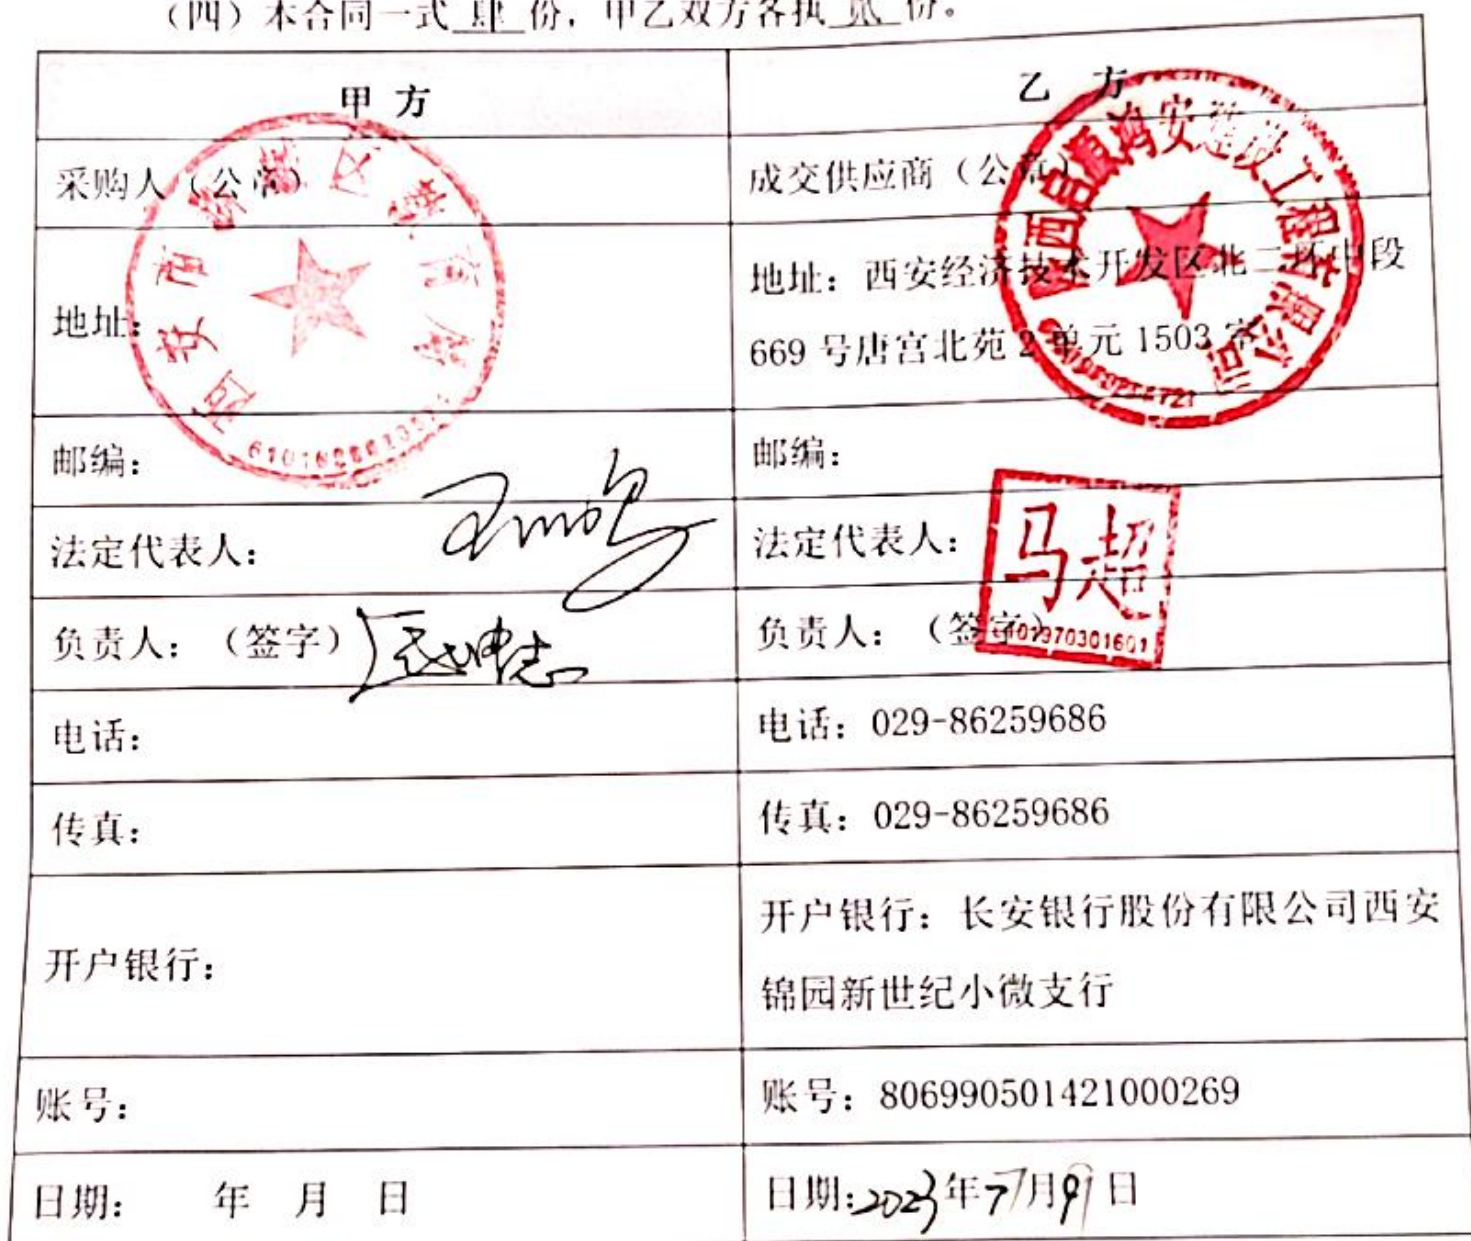 （四）本合同一式 肆 份，甲乙双方各执 贰 份。
甲方
乙 方
采购人（公章）
成交供应商（公章）
地址：
地址：西安经济技术开发区北二环中段
669 号唐宫北苑 2 单元 1503 室
邮编：
邮编：
法定代表人：
法定代表人：
马超
负责人：（签字）
负责人：（签字）
电话：
电话：029-86259686
传真：
传真：029-86259686
开户银行：
开户银行：长安银行股份有限公司西安
锦园新世纪小微支行
账号：
账号：806990501421000269
日期： 年 月 日
日期：2023年7月9日